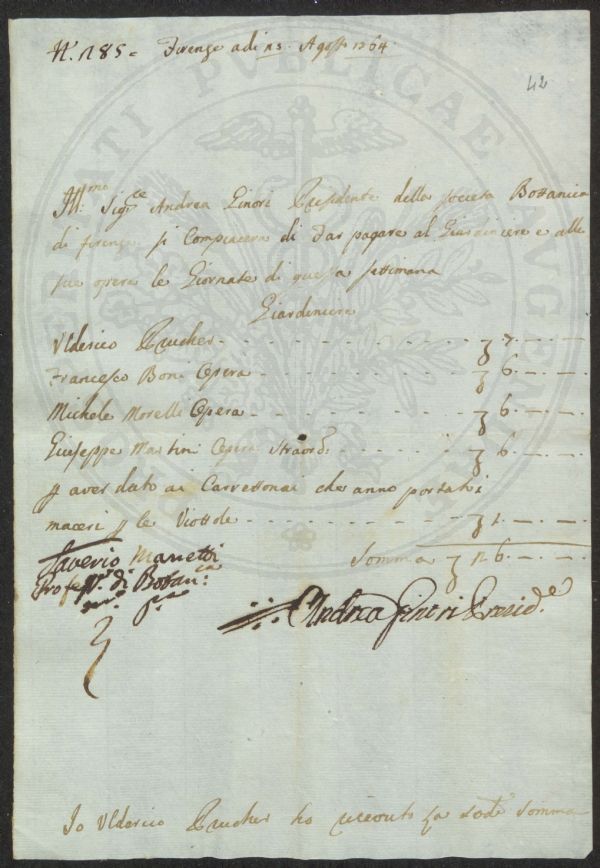 N.º 185 = Firenze adi 25 Agosto 1764
42
Ill.mo Sig.re Andrea Ginori Presidente della Società Bottanica
di firenze si Compiacera di Far pagare al Giardiniere e alle
sue opere le Giornate di questa settimana
Giardiniere
Ulderico Prucher - - - - - 7 - -
Francesco Boni Opera - - - - - 6 - -
Michele Morelli Opera - - - - - 6 - -
Giuseppe Martini Opera Straord.a - - - - - 6 - -
p aver dato ai Carrettonai che anno portato i
maceri p le Viottole - - - - - 1 - -
Somma 26 - -
Saverio Manetti
Profess.re di Botan.ca
Andrea Ginori Presid.e
Io Ulderico Prucher ho riceuto la sod.a somma
SOCIETATI PUBLICAE AUGENDAE